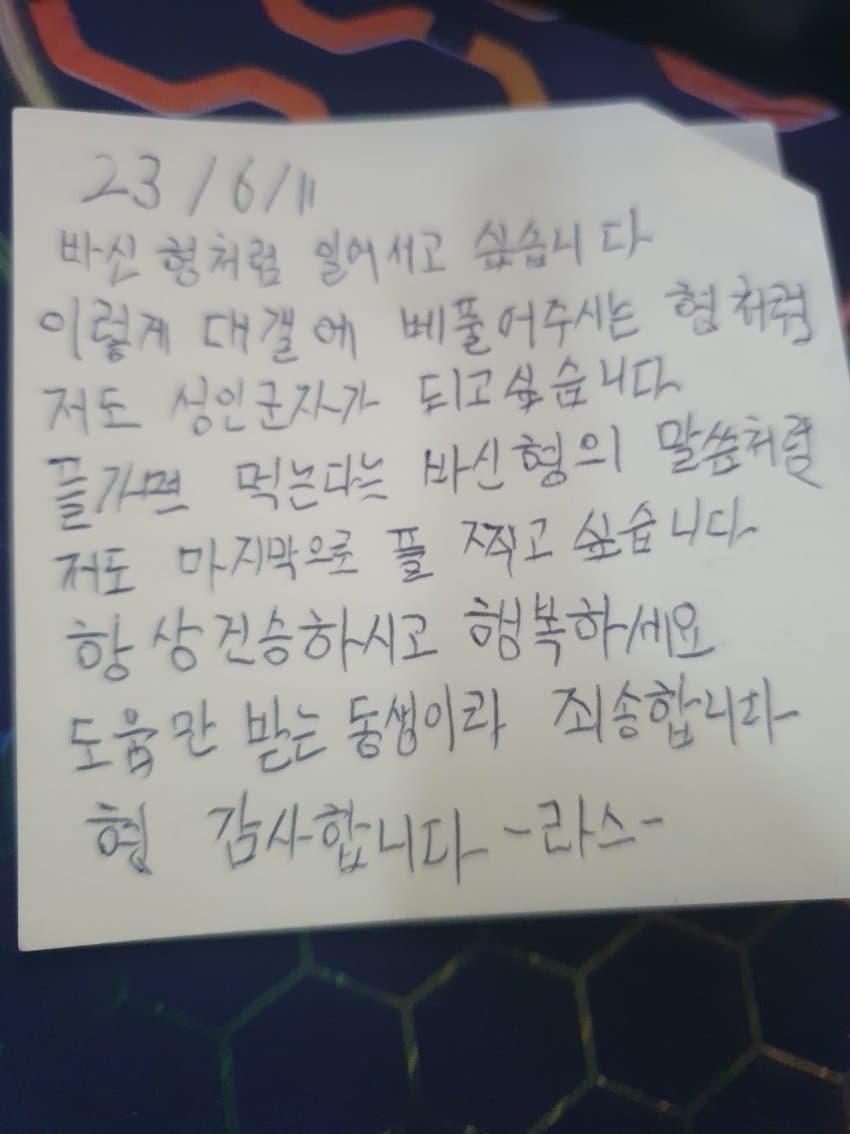 23/6/11
바신 형처럼 일어서고 싶습니다
이렇게 대갤에 베풀어주시는 형처럼
저도 성인군자가 되고싶습니다
플가면 먹는다는 바신형의 말씀처럼
저도 마지막으로 플 찍고 싶습니다
항상건승하시고 행복하세요
도움만 받는 동생이라 죄송합니다
형 감사합니다 -라스-